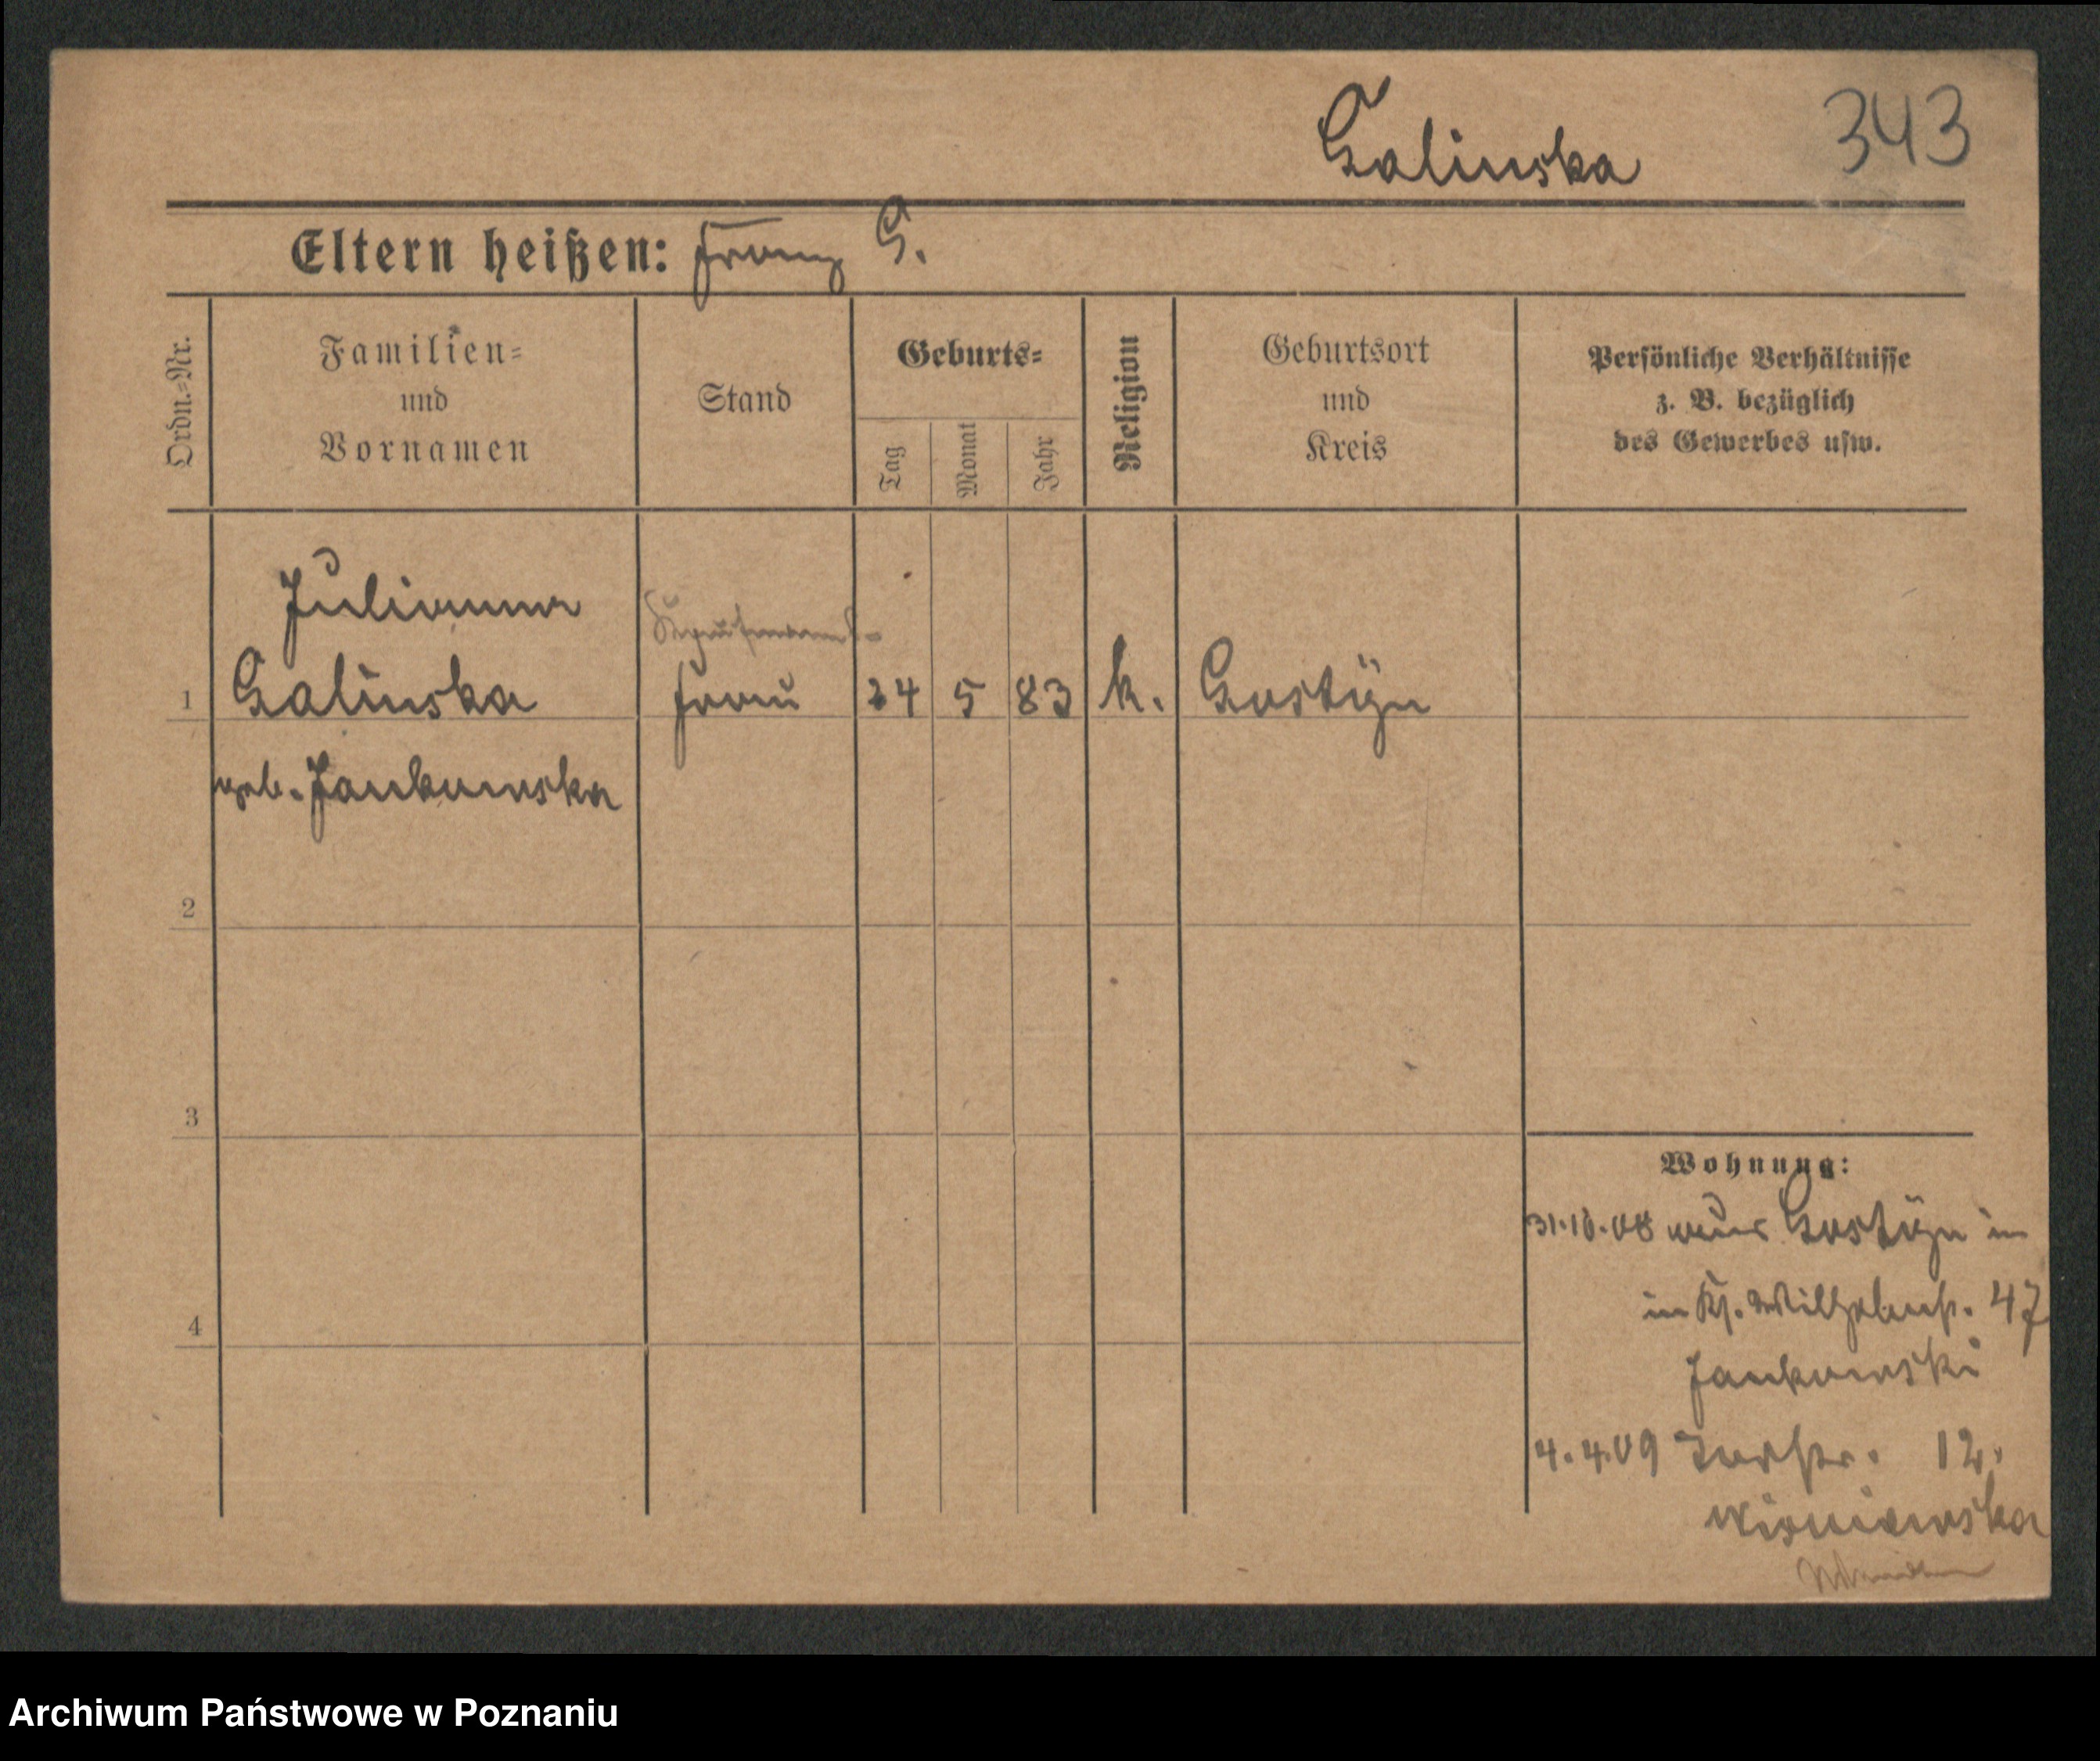 Galinska 343
Eltern heißen: Franz G.
Ordn.=Nr.
Familien=
und
Vornamen
Stand
Geburts=
Tag
Monat
Jahr
Religion
Geburtsort
und
Kreis
Persönliche Verhältnisse
z. B. bezüglich
des Gewerbes usw.
Julianna
1 Galinska frau 24 5 83 k. Gostÿn
geb. Jankowska
2
3
4
Wohnung:
31.10.08 aus Gostÿn in
in Kj. Wilhelmstr. 47
Jankowski
4.4.09 Torstr. 12.
Wisniewska
Archiwum Państwowe w Poznaniu